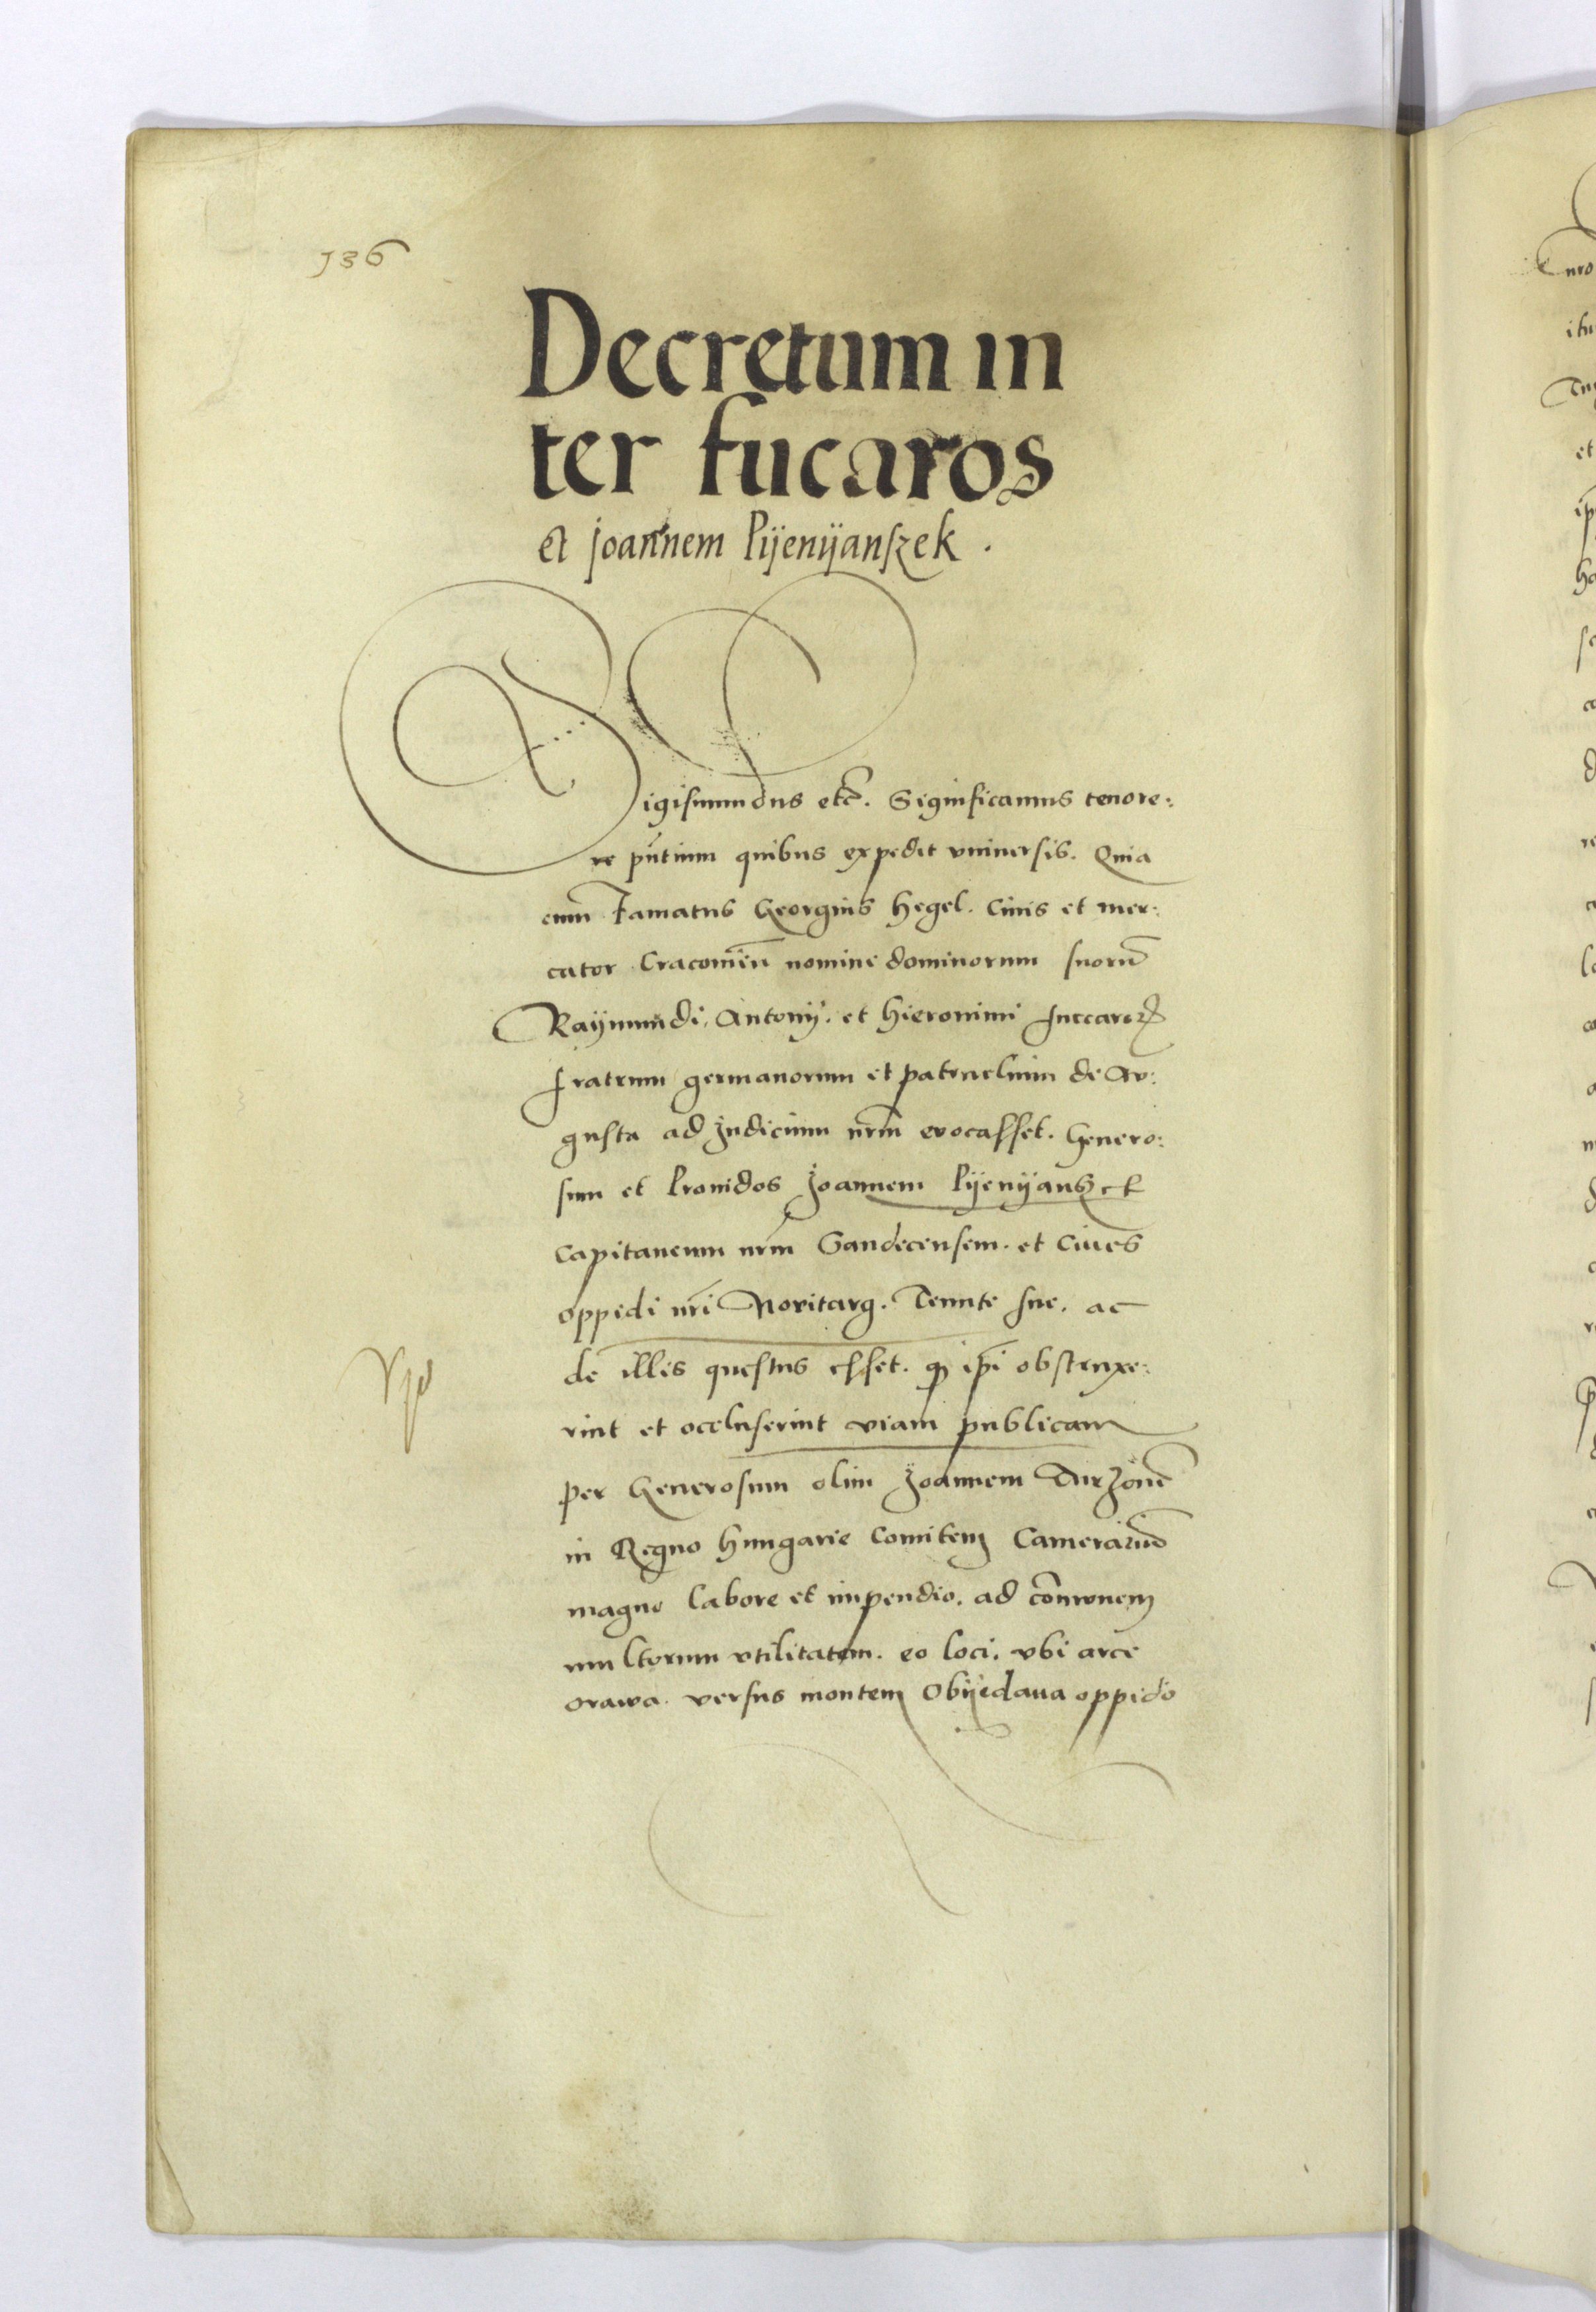 136
Decretum in
ter fucaros
et Joannem Pÿenÿanskek.
Sigismundus etc̃. Significamus tenore:
re pñtium quibus expedit vniuersis. Quia
cum famatus Georgius Hegel. Ciuis et mer:
cator Cracouień nomine dominorum suorũ
Raÿmundi, Antonÿ. et Hieronimi fuccarorꝝ
fratrum germanorum et patruelium de Au:
gusta ad Judicium nrm̃ euocasset. Genero:
sum et Prouidos Joannem Pÿenÿanskek
Capitaneum nrm̃ Sandecensem. et Ciues
oppidi nrĩ Novitarg. Tenute sue. ac
de illis questus esset. ꝙ ip̃i obstruxe:
rint et occluserint viam publicam
per Generosum olim Joannem Turzonẽ
in Regno Hungarie Comitem Camerariũ
magno labore et impendio. ad cõmunem
multorum vtilitatem. eo loci. vbi arce
orawa. versus montem Obÿedaua oppido